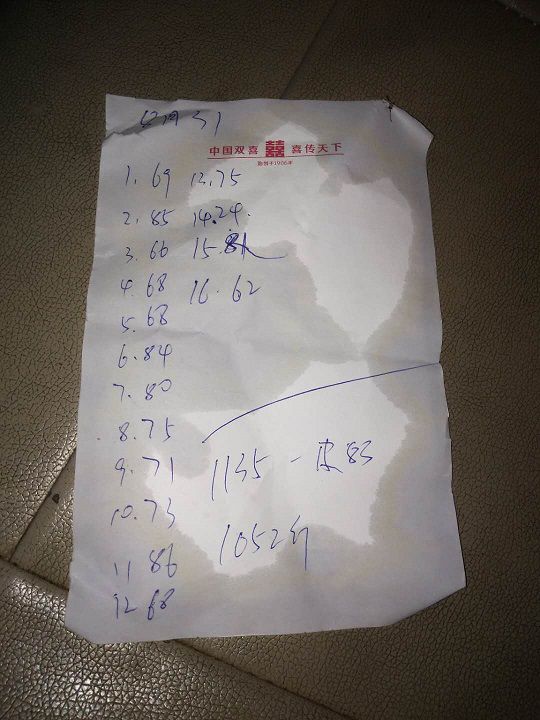 12月31
中国双喜 囍 喜传天下
始创于1906年
1.69
2.85
3.66
4.68
5.68
6.84
7.80
8.75
9.71
10.73
11 86
12 68
13.75
14.24.
15.81
16.62
1135-皮83
1052斤